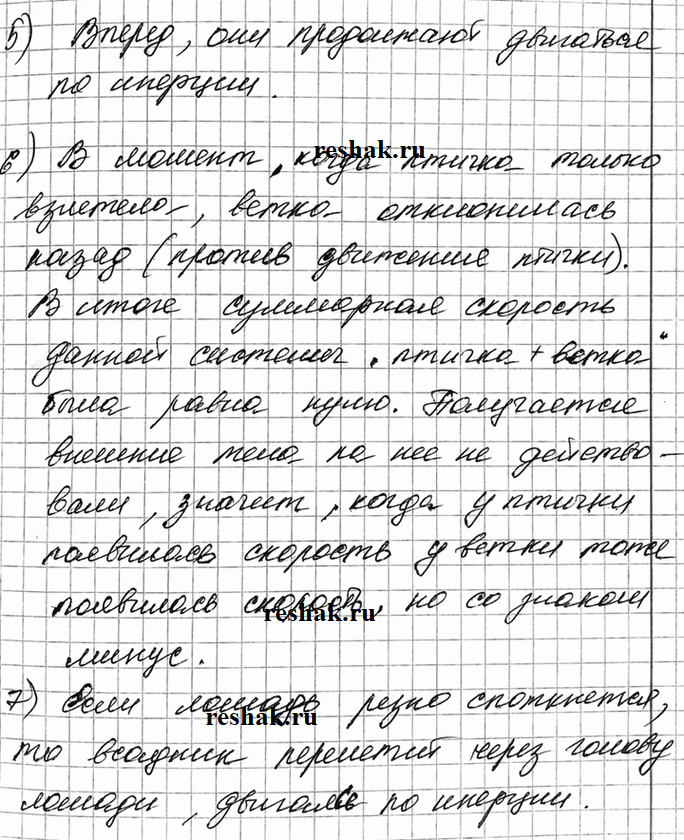 5) Вперед, они продолжают двигаться
по инерции.
6) В момент, когда птичка только
взлетела, ветка отклонилась
назад (против движения птички).
В итоге суммарная скорость
данной системы „птичка + ветка“
была равна нулю. Получается
внешние тела на нее не действо-
вали, значит, когда у птички
появилась скорость у ветки тоже
появилась скорость, но со знаком
минус.
7) Если лошадь резко споткнется,
то всадник перелетит через голову
лошади, двигаясь по инерции.
reshak.ru
reshak.ru
reshak.ru